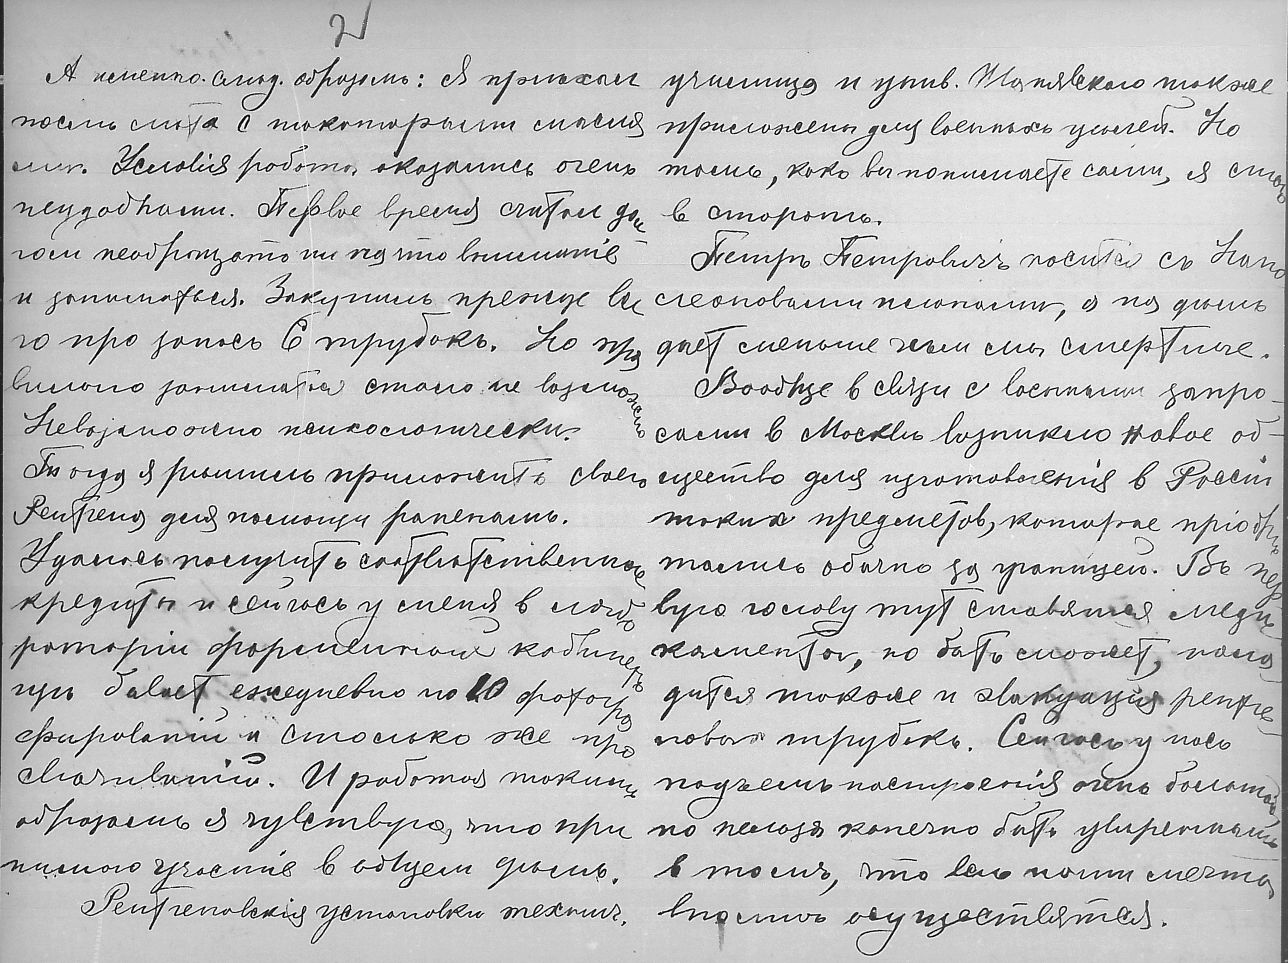 2
А именно след. образомъ: Я приехал
после лета с некоторыми мыслями
ями. Условия работы оказались очень
неудобными. Первое время считал дол
гом необращать ни на что внимание
и заниматься. Закупилъ прежде все
го про запасъ 6 трубокъ. Но пра
вильно заниматься стало не возможно
Невозможно психологически.
Тогда я решилъ приложить своего
Рентгена для помощи раненымъ.
Удалось получить соответственные
кредиты и сейчасъ у меня в лабо
ратории форменный кабинетъ
где бывает ежедневно по 10 фотогра
фирований и столько же про
свечиваний. И работая такимъ
образомъ я чувствую, что при
нимаю участие в общем деле.
Рентгеновския установки технич.
училища и унив. Шанявского также
приложены для военныхъ целей. Но
темъ, какъ вы понимаете сами, я
в стороне.
Петръ Петровичъ носится съ Напо
леоновыми планами, а на деле
дает меньше чем мы смертные.
Вообще в связи с военными запро-
сами в Москве возникло новое об-
щество для изготовления в России
таких предметов, которые приобре
тались обычно за границей. Въ пер
вую голову тут ставятся меди
каменты, но быть может, нала
дится также и эвакуация рентге
новых трубокъ. Сейчасъ у насъ
подъем настроения очень большой,
но нельзя конечно быть уверенными
в томъ, что все наши мечты
вполне осуществятся.